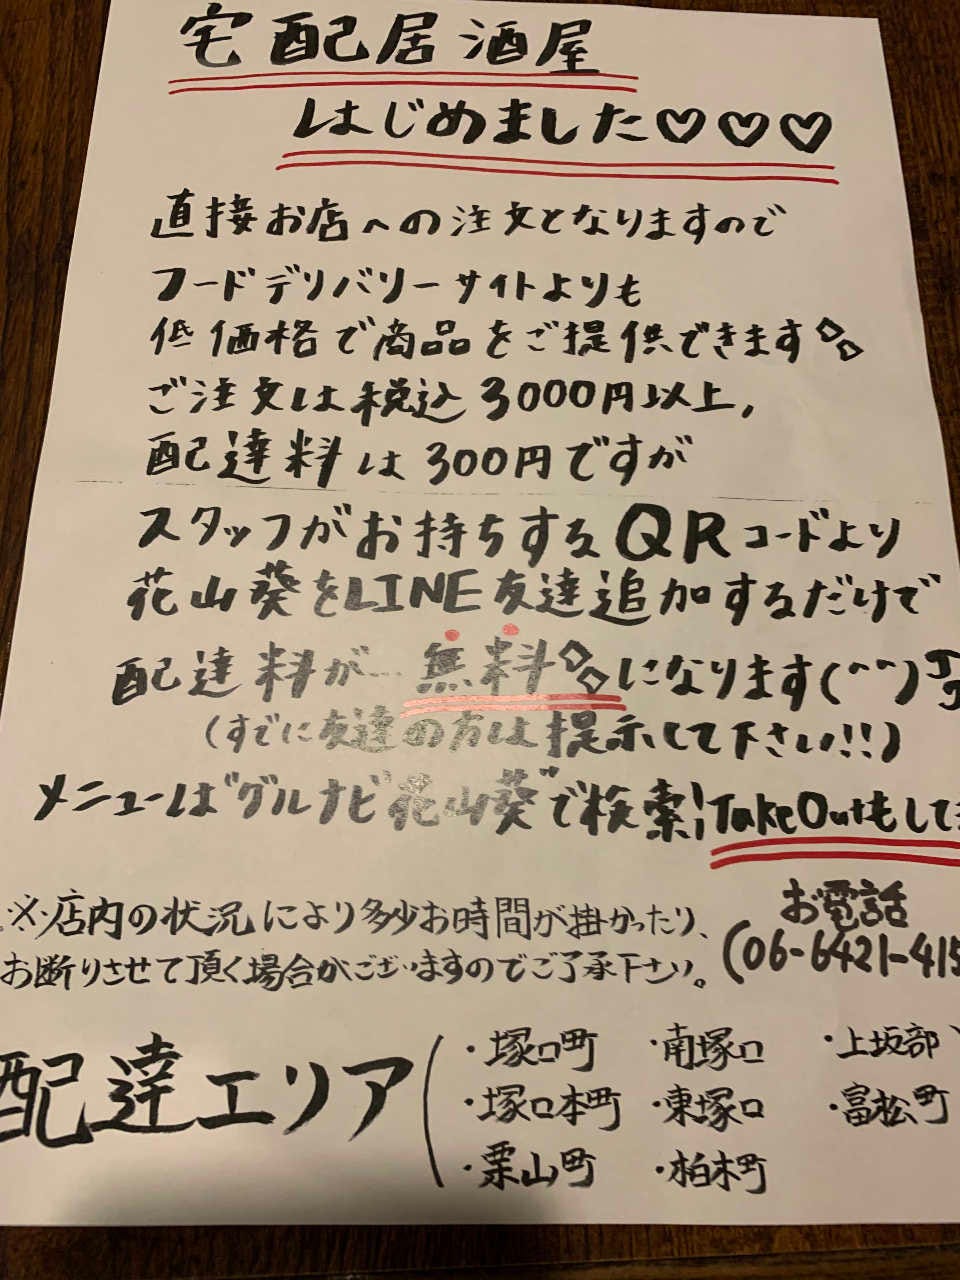 宅配居酒屋
はじめました♡♡♡
直接お店への注文となりますので
フードデリバリーサイトよりも
低価格で商品をご提供できます
ご注文は税込3000円以上,
配達料は300円ですが
スタッフがお持ちするQRコードより
花山葵をLINE友達追加するだけで
配達料が…無料になります(^^)
(すでに友達の方は提示して下さい!!)
メニューは"グルナビ花山葵"で検索!TakeOutもして
※店内の状況により多少お時間が掛かったり、
お断りさせて頂く場合がございますのでご了承下さい。
お電話
(06-6421-415
配達エリア
・塚口町 ・南塚口 ・上坂部
・塚口本町 ・東塚口 ・富松町
・栗山町 ・柏木町